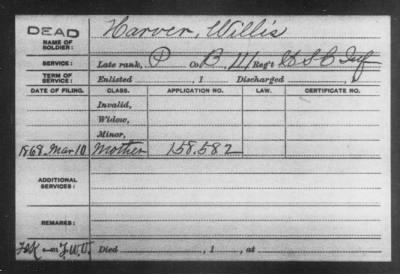 DEAD
NAME OF SOLDIER: Harver, Willis
SERVICE: Late rank, P Co. B, 111 Reg't U S C Inf
TERM OF SERVICE: Enlisted , 1 Discharged , 1
DATE OF FILING. CLASS. APPLICATION NO. LAW. CERTIFICATE NO.
Invalid,
Widow,
Minor,
1868 Mar 10 Mother 158.582
ADDITIONAL SERVICES:
REMARKS:
Died , 1 , at